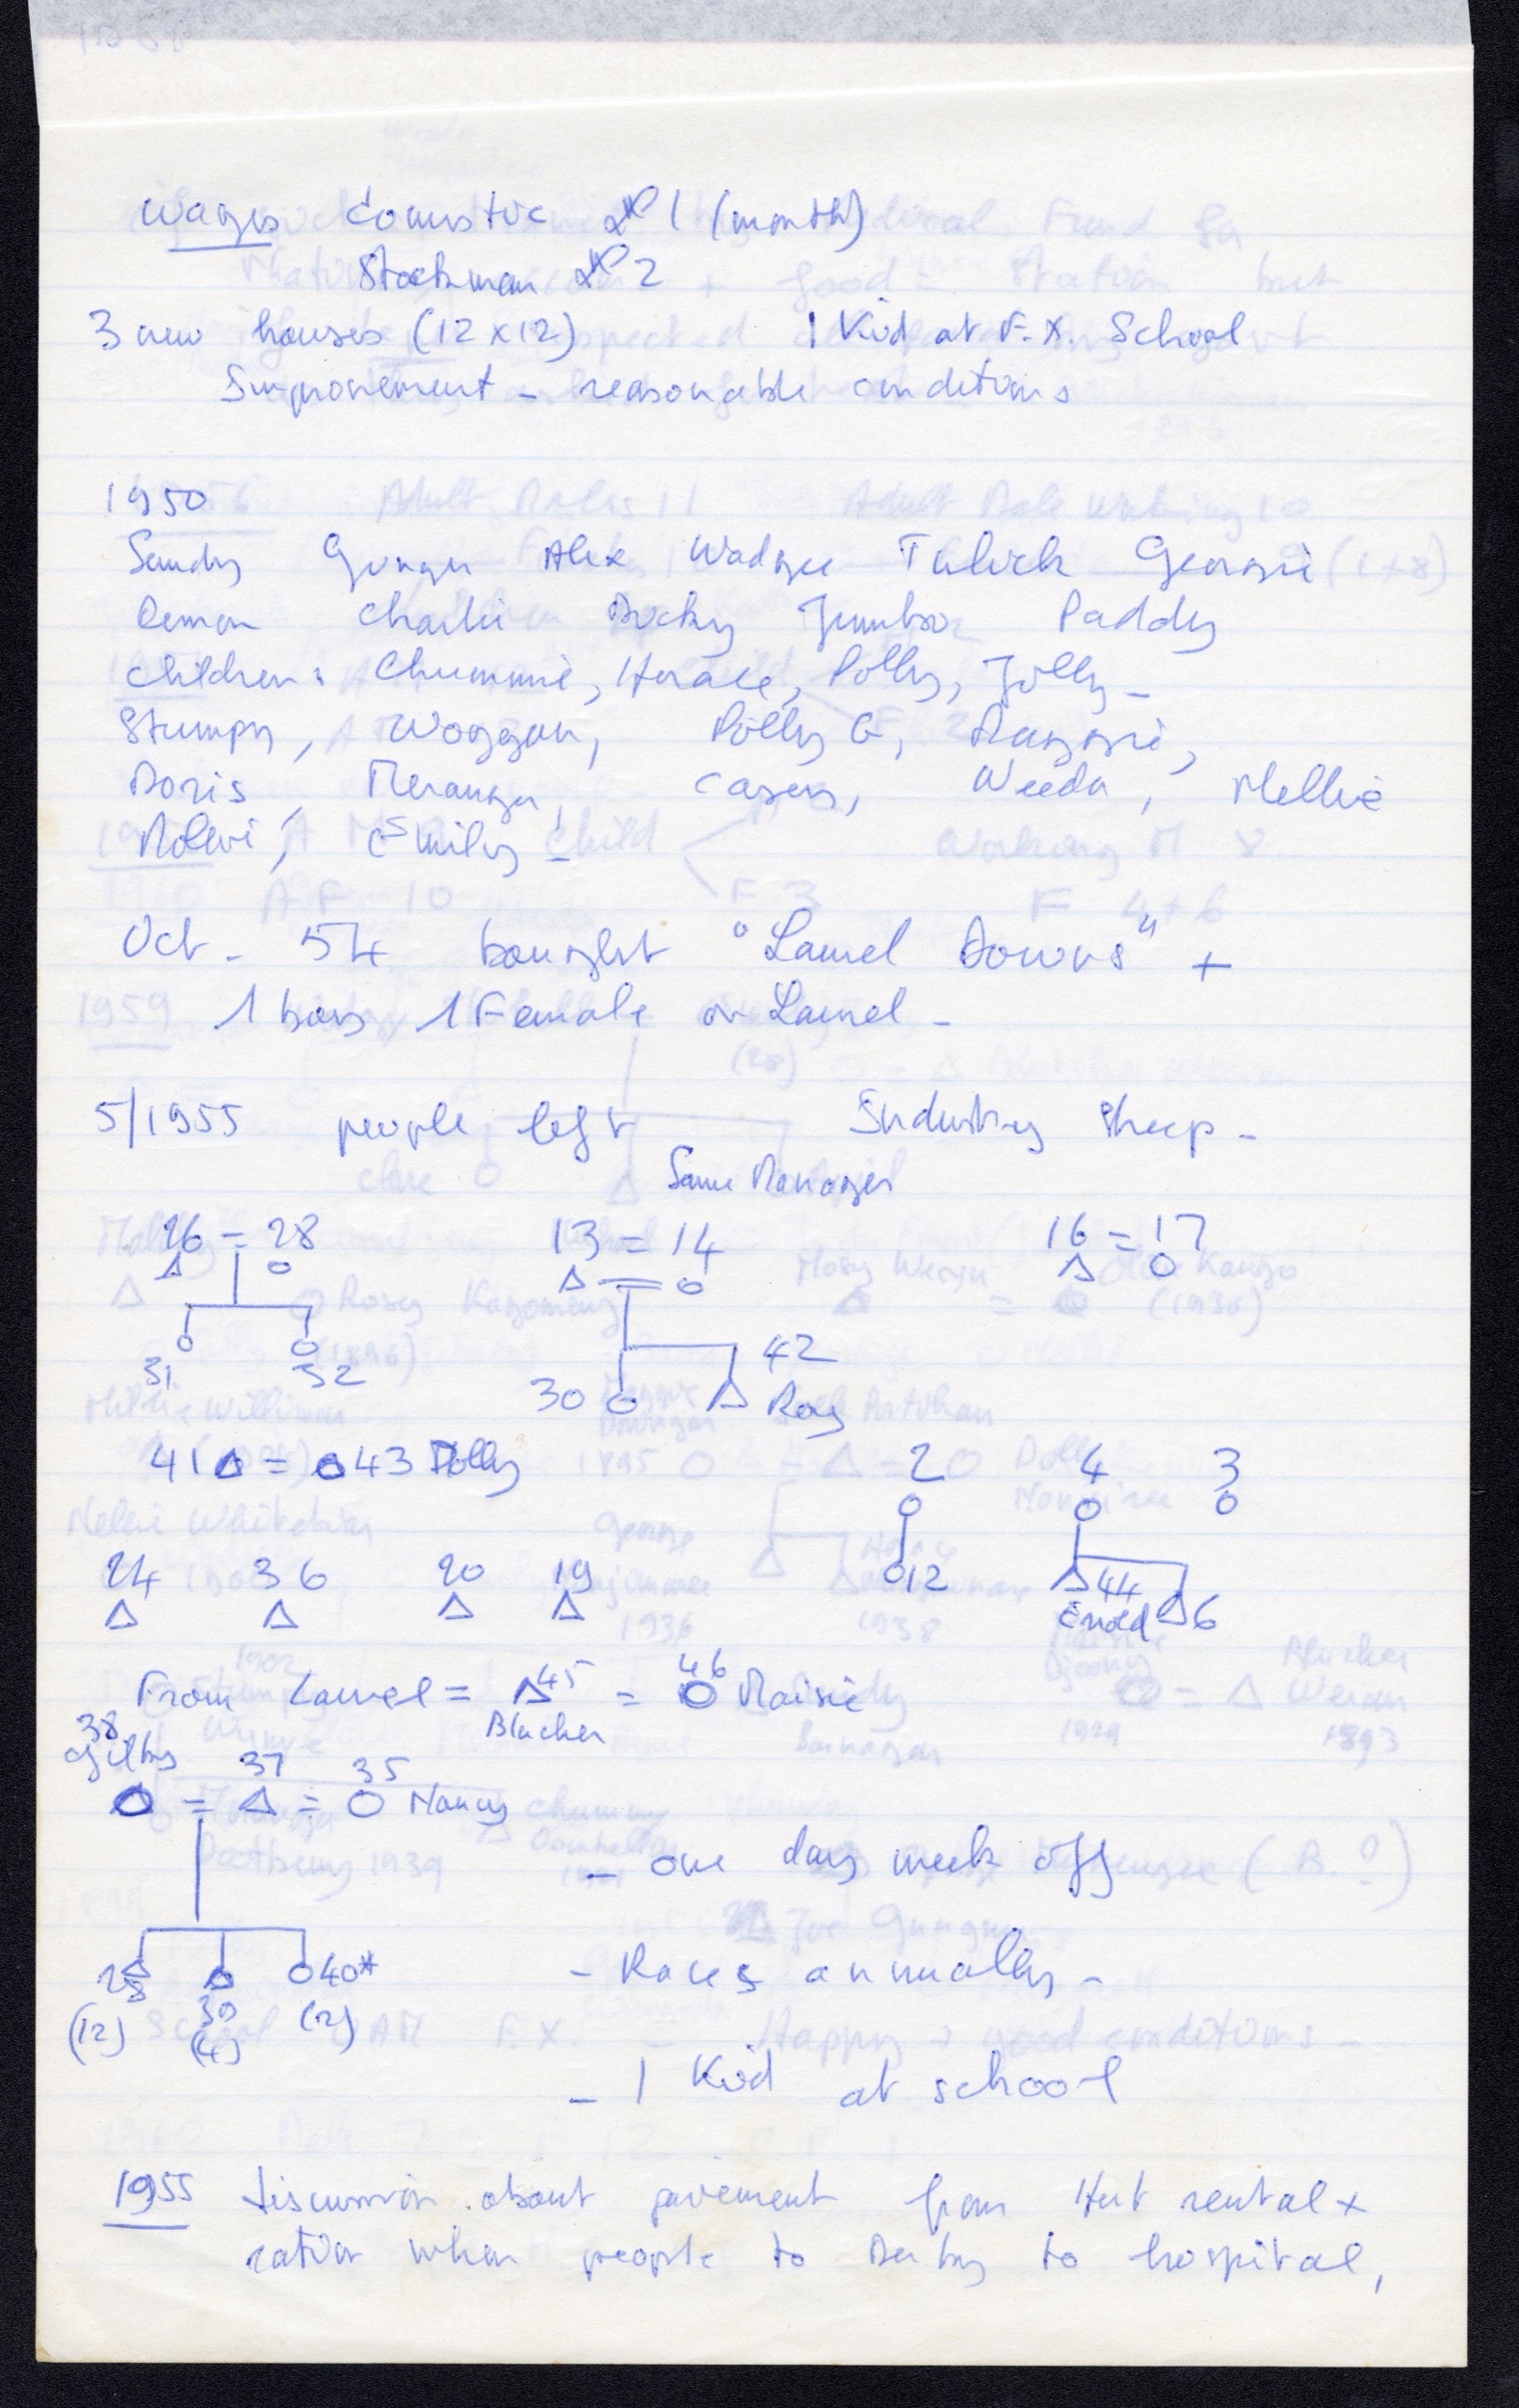 Wages domestic £ 1 (month)
Stockman £ 2
3 new houses (12 x 12) 1 Kid at F.X. School
Improvement - reasonable conditions
1950
Sandy Gungu Alex Wadgee Tulick Georgie
Demon Charlie Ducky Jumbo Paddy
Children: Chummie, Horace, Polly, Jolly -
Stumpy, Woggan, Polly G, Maggie,
Doris, Meranga, Casey, Weeda, Nellie
Molwi, Emily -
Oct - 54 bought "Lamel Downs" +
1 boy 1 Female on Lamel -
5/1955 people left Industry Sheep -
Same Manager
26 = 28 13 = 14 16 = 17
31 32 30 42
Roy
41 = 43 Dolly 2 4 3
24 36 20 19 12 44 6
Enoed
From Lamel = 45 = 46 Maisie
Blucher
38
Gilby 37 35
= = Nancy
- one day week off
28 39 40*
(12) (4) (2)
- Races annually -
- 1 Kid at school
1955 discussion about pavement from Hut rental +
ration when people to Derby to hospital,